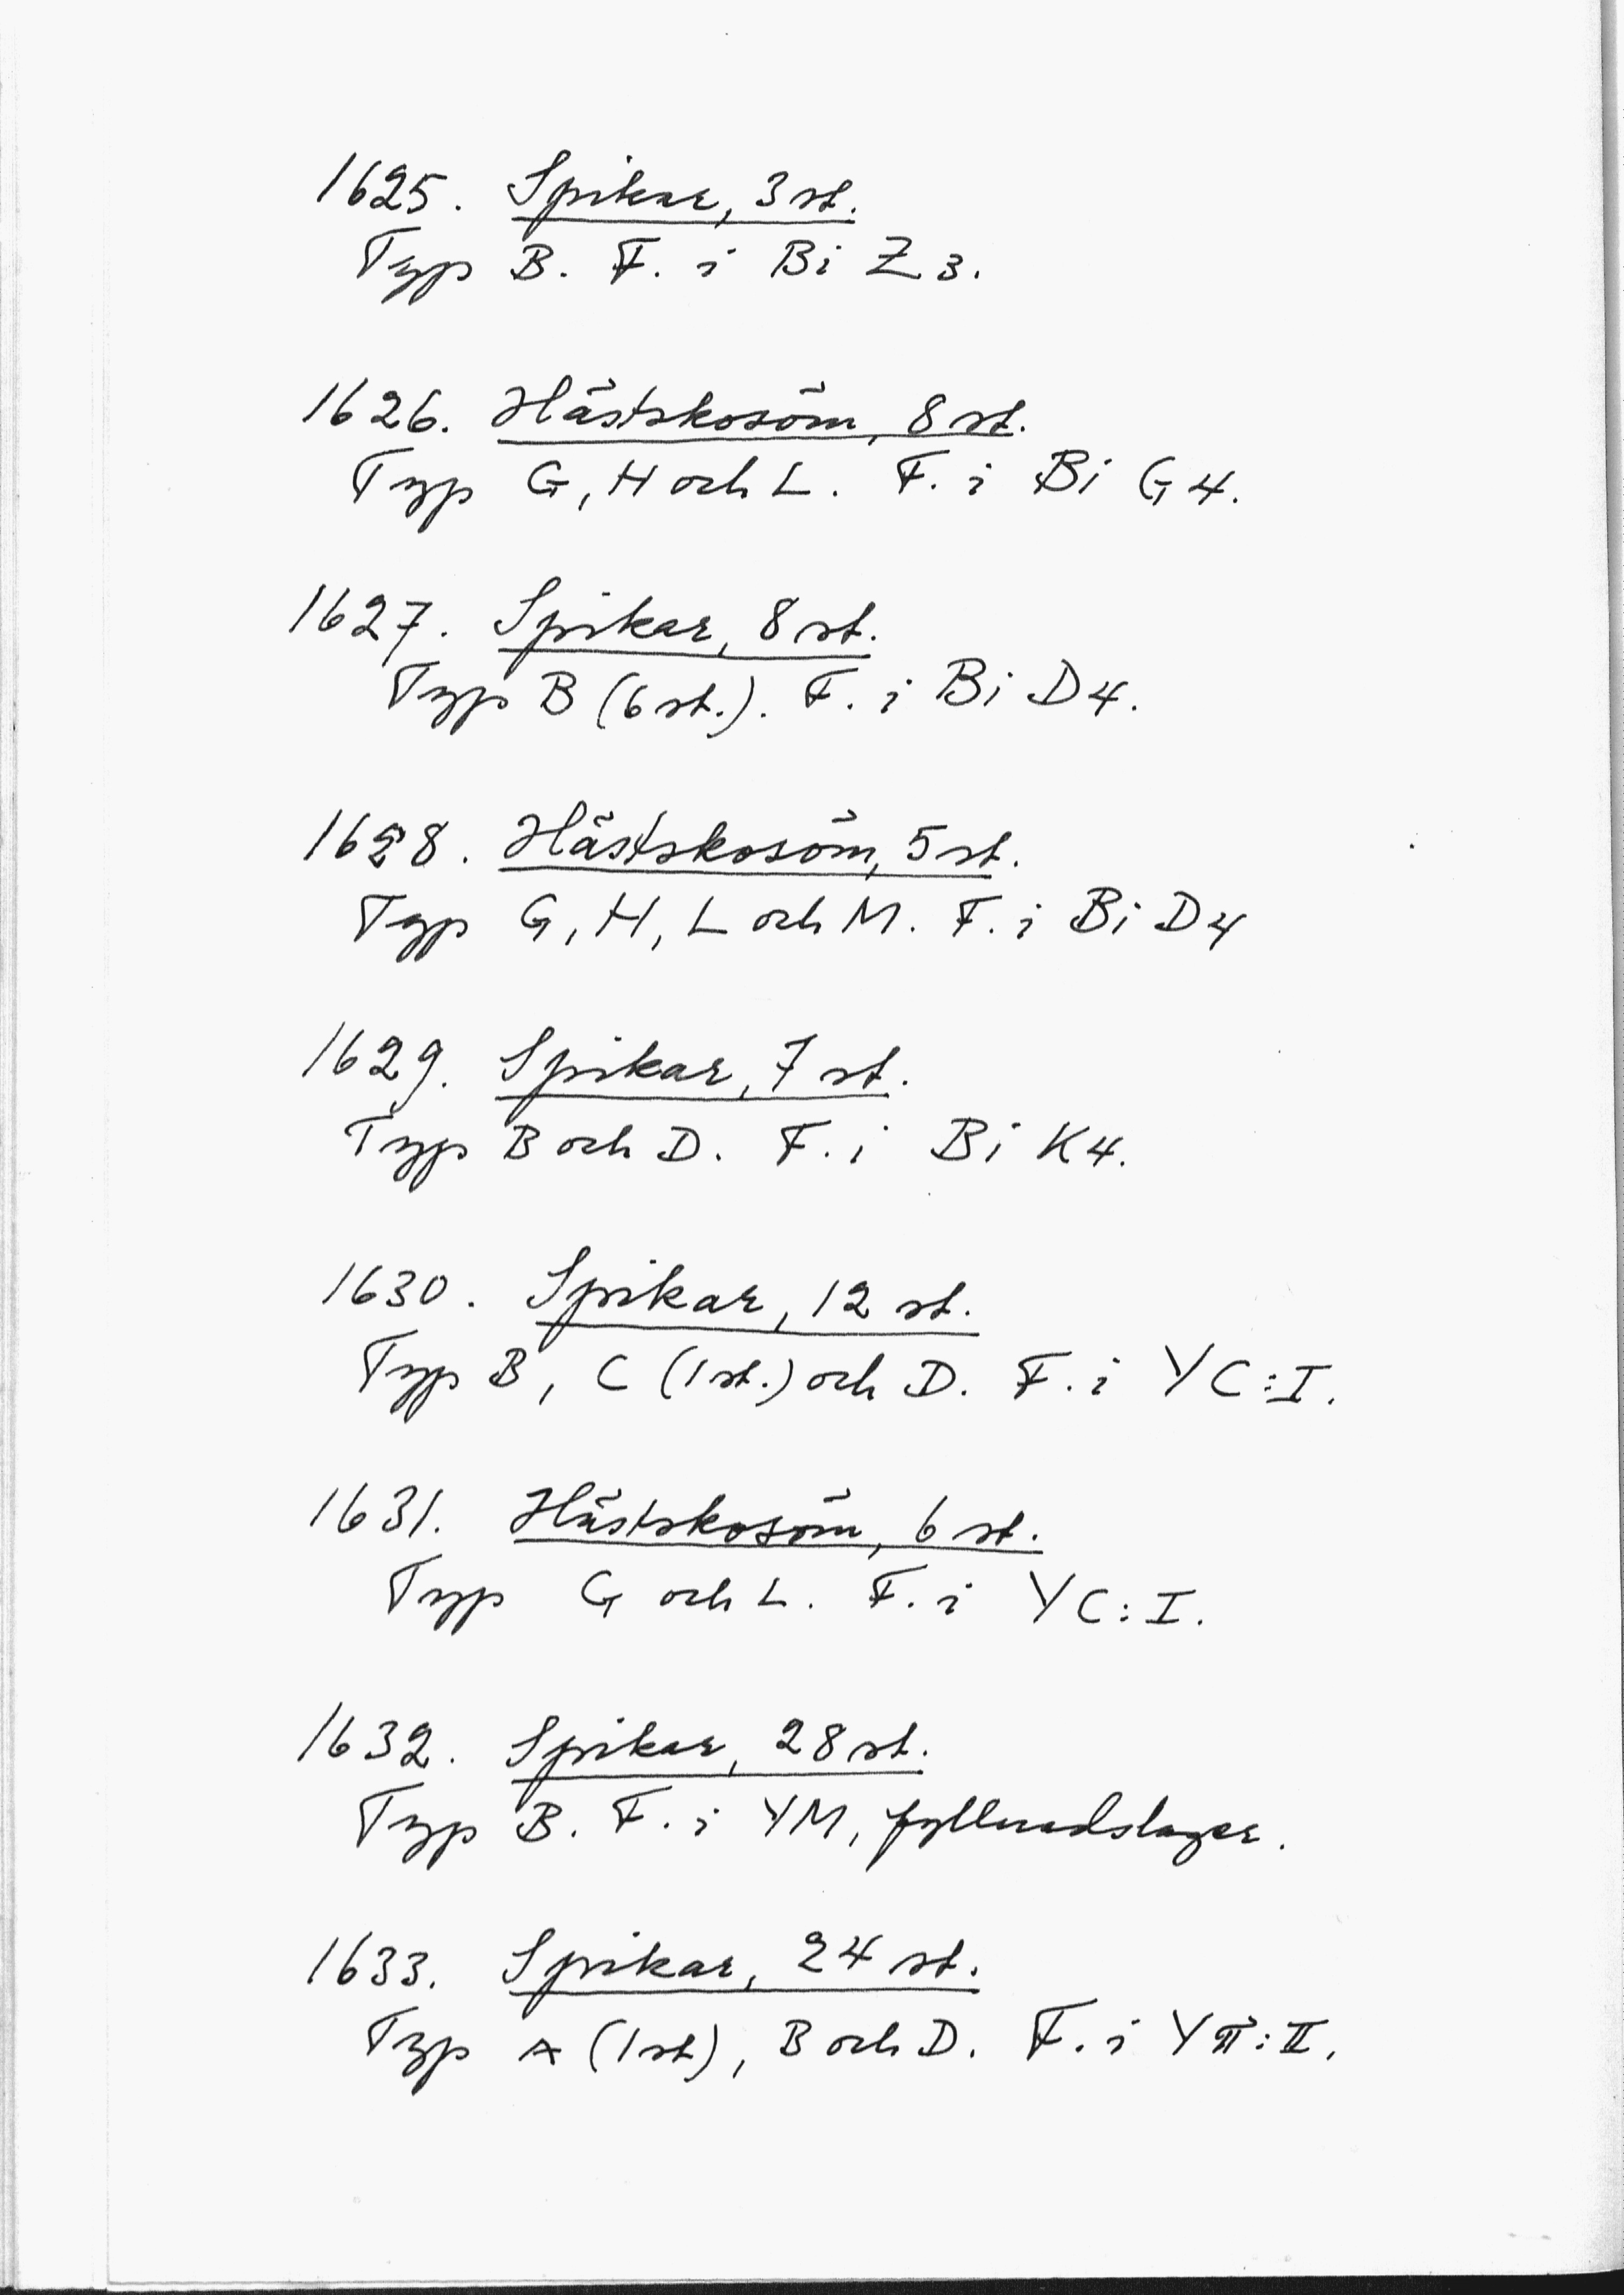 1625. Spikar, 3 st.
Typ B. F. i Bi Z 3.
1626. Hästskosöm, 8 st.
Typ G, H och L. F. i Bi G 4.
1627. Spikar, 8 st.
Typ B (6 st.). F. i Bi D4.
1628. Hästskosöm, 5 st.
Typ G, H, L och M. F. i Bi D4
1629. Spikar, 7 st.
Typ B och D. F. i Bi K4.
1630. Spikar, 12 st.
Typ B, C (1 st.) och D. F. i YC:I.
1631. Hästskosöm, 6 st.
Typ G och L. F. i YC:I.
1632. Spikar, 28 st.
Typ B. F. i YM, fyllnadslager.
1633. Spikar, 24 st.
Typ A (1 st), B och D. F. i Y π:II.